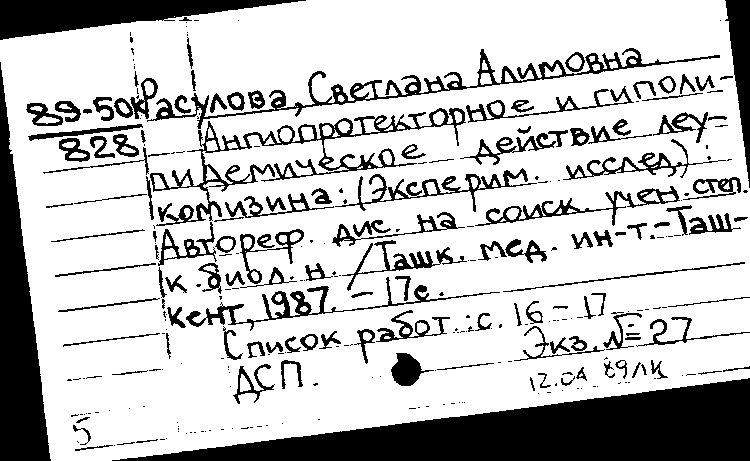 89-50к Расулова, Светлана Алимовна.
828 Ангиопротекторное и гиполи-
пидемическое действие леу-
комизина: (Эксперим. исслед.) :
Автореф. дис. на соиск. учен. степ.
к. биол. н. / Ташк. мед. ин-т. - Таш-
кент, 1987. - 17с.
Список работ.: с. 16 - 17
Экз. № 27
ДСП.
12.04 89
5